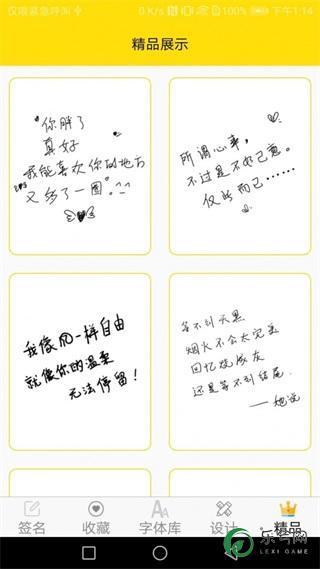 仅限紧急呼叫
0 K/s
下午1:14
精品展示
你胖了
真好
我能喜欢你的地方
又多了一圈.^^
所谓心事,
不过是不好己意。
仅此而已……
我像风一样自由
就像你的温柔
无法停留!
等不到天黑
烟火不会太完美
回忆烧成灰
还是等不到结尾.
——她说
签名
收藏
字体库
设计
精品
乐号网
LEXI GAME